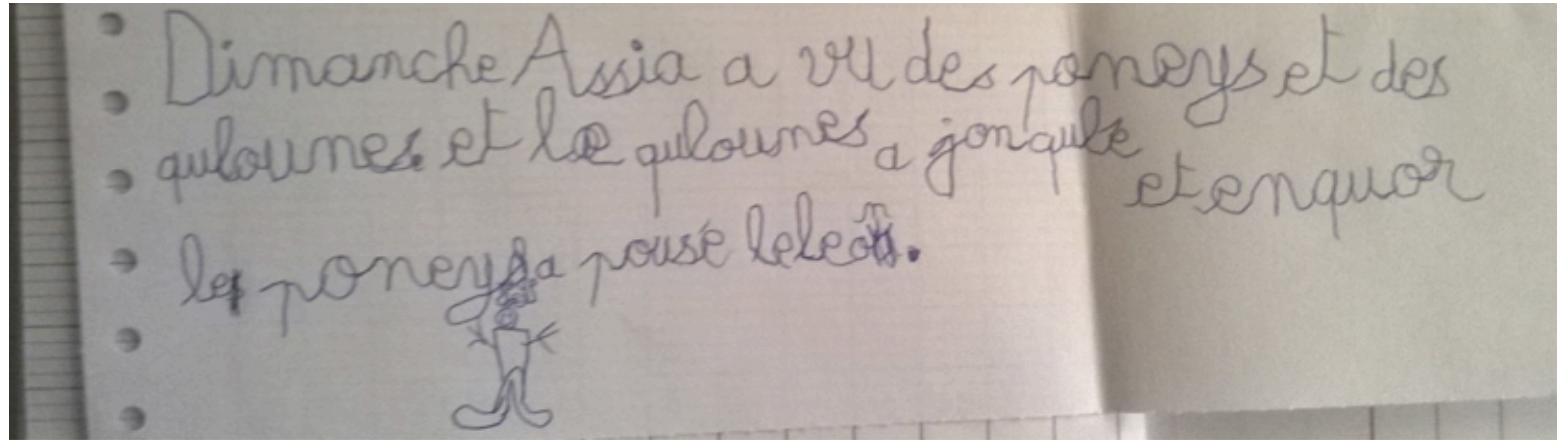 Dimanche Assia a vu des poneys et des
qulounes et le qulounes a jonqulé
et enquor
les poneys a pousé